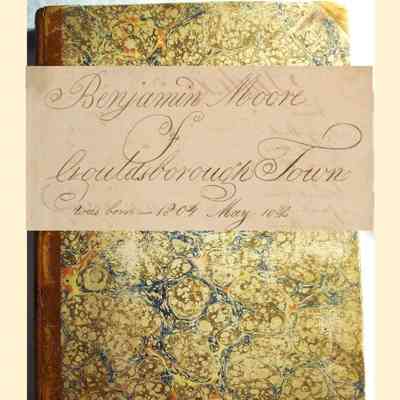 Benjamin Moore
of
Gouldsborough Town
was born 1804 May 10th